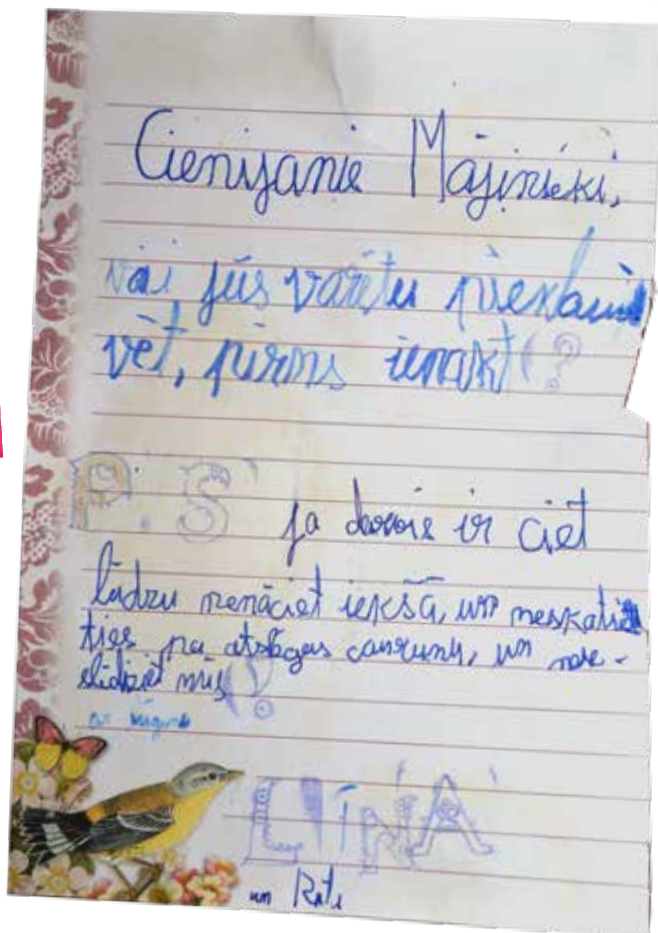 Cienijamie Mājinieki,
vai jūs varētu pieklau
vēt, pirms ienākt?
P.S ja durvis ir ciet
lūdzu nenāciet iekšā, un neskatie
ties pa atslēgas caurumu, un
mūs!
LĪNA
un